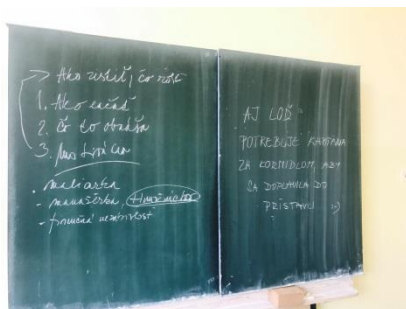 Ako zistiť, čo robiť
1. Ako začať
2. Čo to obnáša
3.
• maliarka
- manažérka, tlmočníčka
- finančná nezávislosť
AJ LOĎ
POTREBUJE KAPITÁNA
ZA KORMIDLOM, ABY
SA DOPLAVILA DO
PRÍSTAVU :)